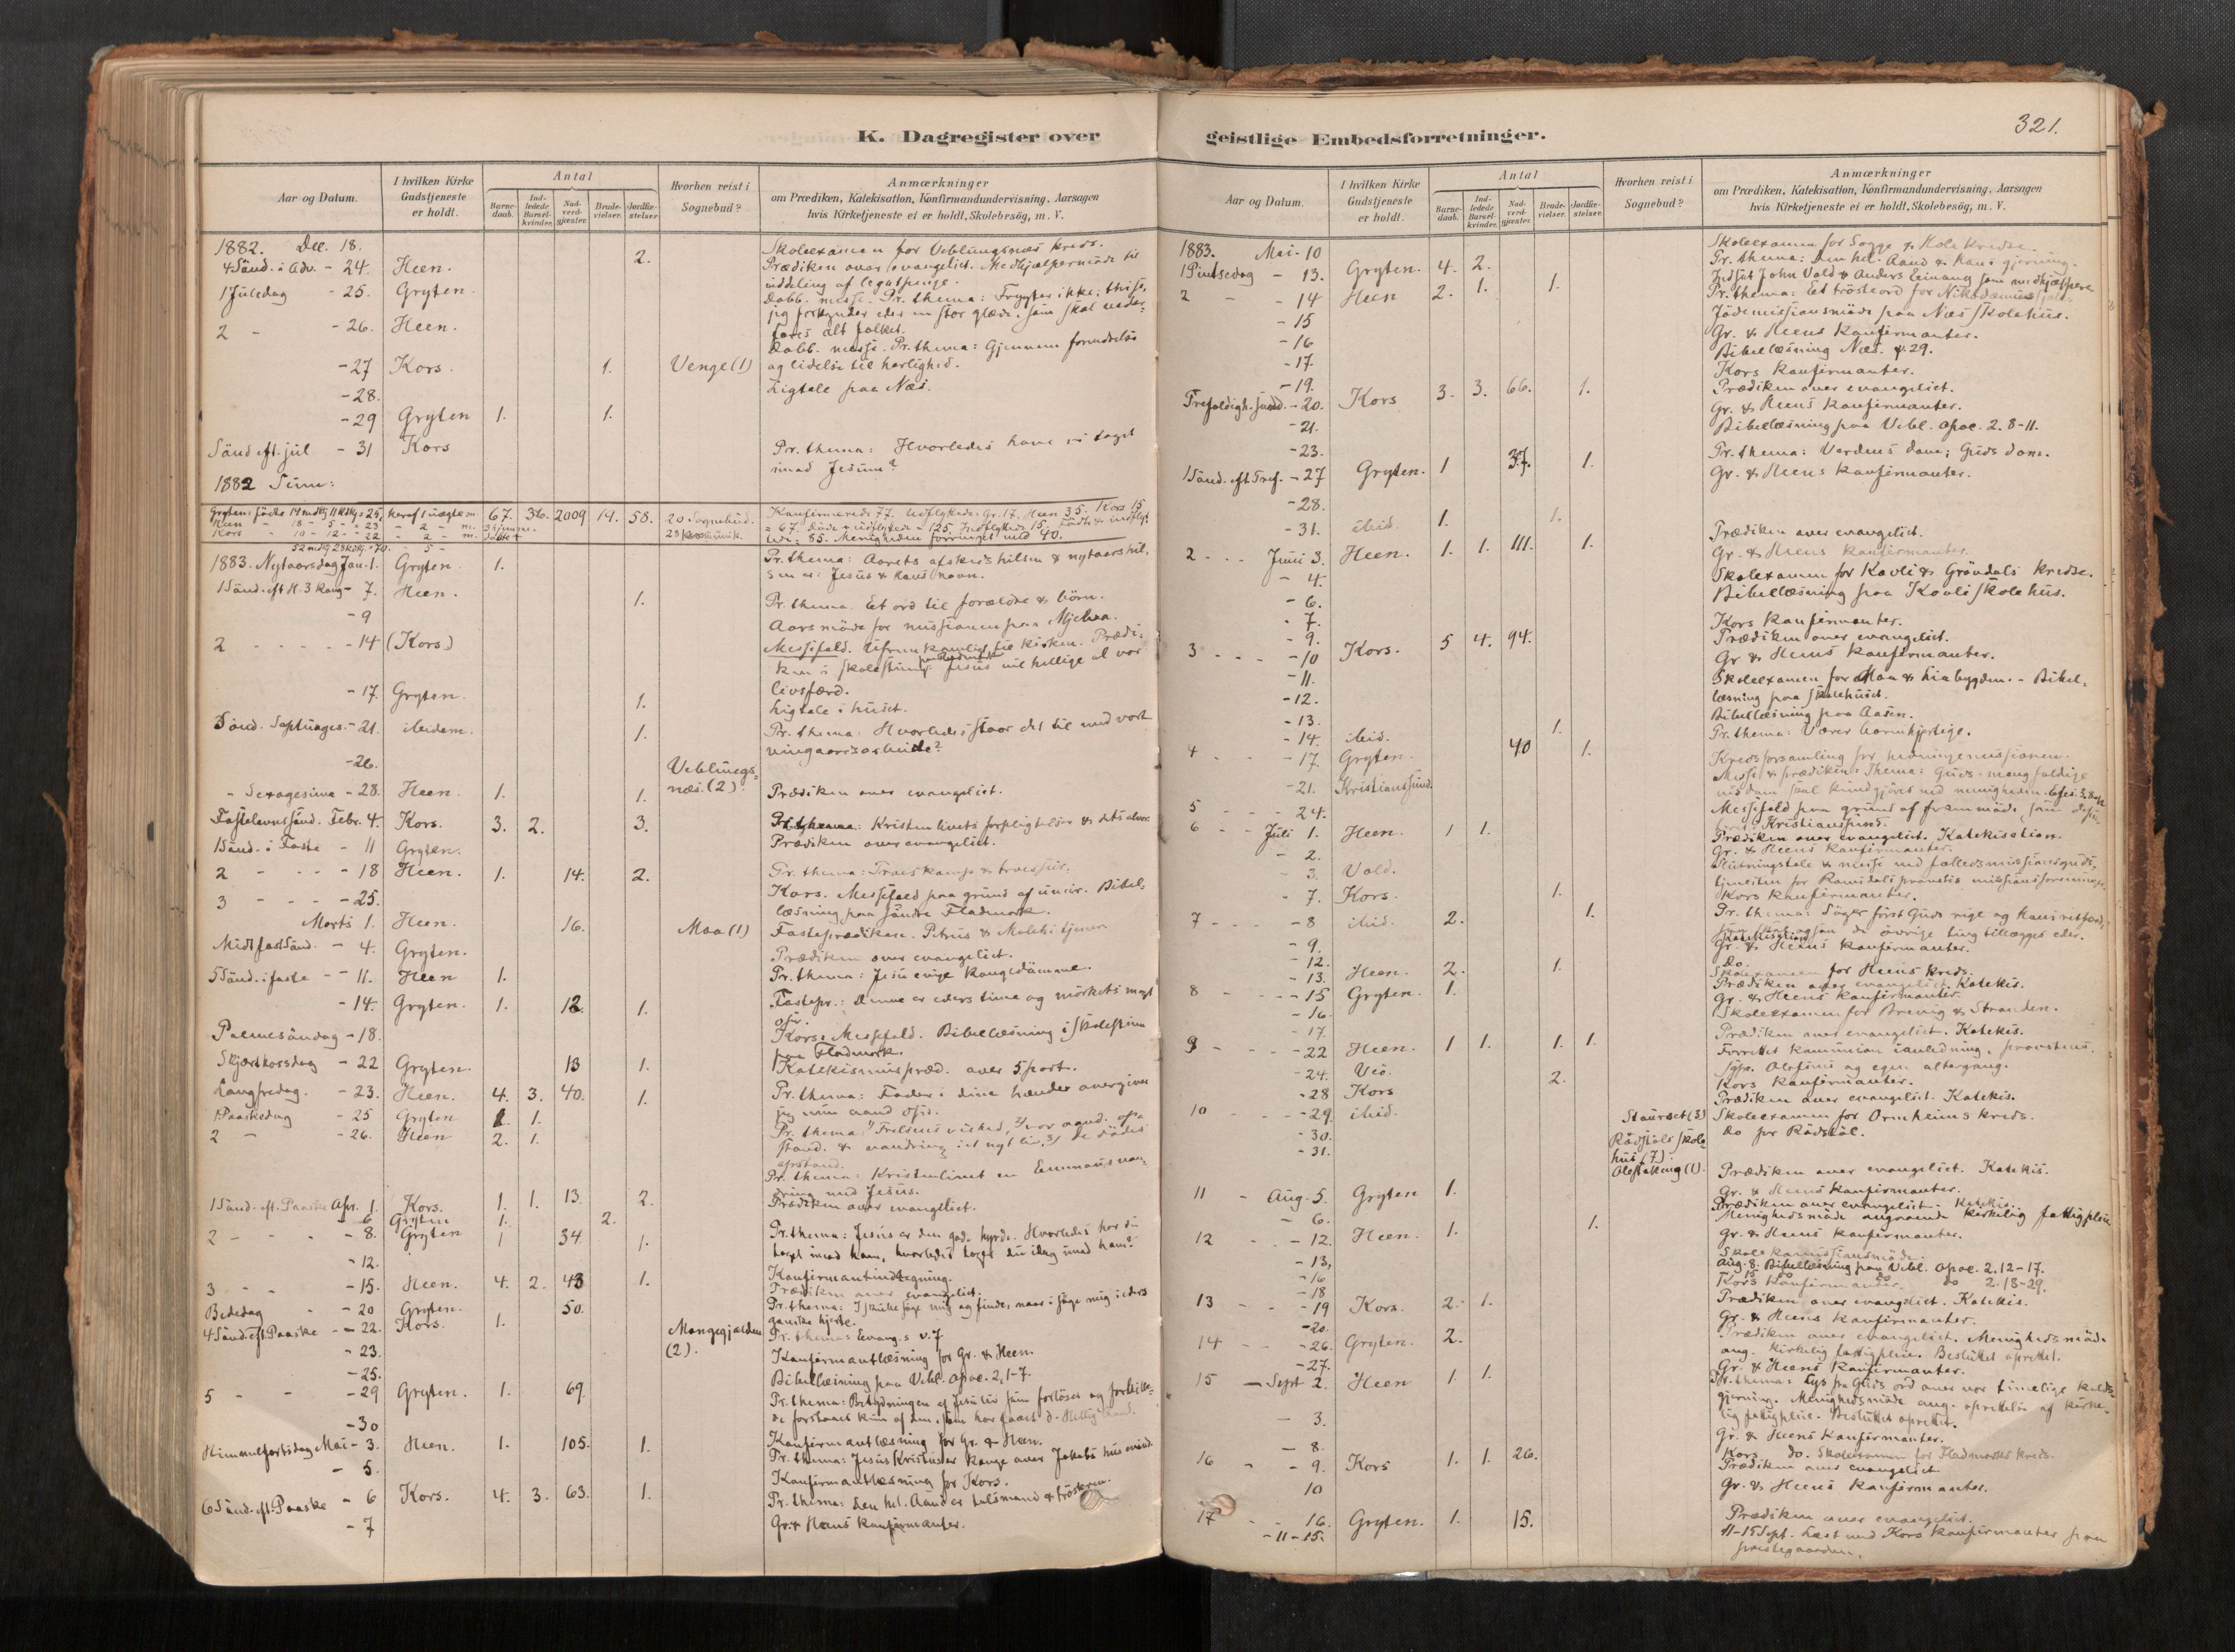 K. Dagregister over
Aar og Datum.
I hvilken Kirke Gudstjeneste er holdt.
Antal
Barne-daab.
Ind-ledede Barsel-kvinder.
Nad-verd-gjester.
Brude-vielser.
Jordfæ-stelser.
Hvorhen reist i Sognebud?
Anmærkninger
om Prædiken, Katekisation, Konfirmandundervisning, Aarsagen
hvis Kirketjeneste ei er holdt, Skolebesög, m. V.
1882. Dec. 18. 2. Skoleexamen for Veblungsnæs kreds.
4 Sönd. i Adv. - 24. Heen. Prædiken over evangeliet. Medhjælpermöde til
uddeling af legatpenge.
1 Juledag - 25. Gryten. Dobb. messe. Pr. thema: Frygter ikke; thi se,
jeg forkynder eder en stor glæde, som skal veder-
fares alt folket.
2 - - 26. Heen. Dobb. messe. Pr. thema: Gjennem fornedrelse
og lidelse til herlighed.
- 27 Kors. 1. Venge (1)
- 28. Ligtale paa Næs.
- 29 Gryten 1. 1.
Sönd eft. jul - 31 Kors Pr. thema: Hvorledes have vi taget
imod Jesum?
1882 Sum:
67. 36. 2009 19. 58. 20 Sognebud.
1883. Nytaarsdag Jan. 1. Gryten 1. Pr. thema: Aarets afskedshilsen & nytaarshil-
sen er: Jesus & hans navn.
1 Sönd. eft H. 3 Kong - 7. Heen. 1. Pr. thema. Et ord til forældre & börn.
- 9 Aarsmöde for missionen paa Mjelva.
2 - - - - 14 (Kors) Messefald. Ufremkommeligt til kirken. Prædi-
ken i skolestuen Jesus vil hellige al vor
livsfærd.
- 17. Gryten. 1. Ligtale i huset.
Sönd. Septuages. - 21. ibidem. 1. Pr. thema: Hvorledes staar det til med vort
vingaardsarbeide?
- 26. Veblungs-
næs. (2).
- Sexagesima - 28. Heen. 1. 1. Prædiken over evangeliet.
Fastelavnssönd. Febr. 4. Kors. 3. 2. 3. Pr. thema: Kristenlivets forpligtelser & dets alvor.
1 Sönd. i Faste - 11 Gryten. Prædiken over evangeliet.
2 - - - 18 Heen. 1. 14. 2. Pr. thema: Troeskamp & troesseir.
3 - - - 25. Kors. Messefald paa grund af uveir. Bibel-
læsning paa söndre Fladmark.
Marts 1. Heen. 16. Maa (1) Fasteprædiken. Petrus & Malchi tjener
Midtfastsönd. - 4. Gryten. Prædiken over evangeliet.
5 Sönd. i faste - 11. Heen 1. Pr. thema: Jesu evige kongedömme.
- 14. Gryten. 1. 12. 1. Fastepr.: Denne er eders time og mörkets magt
Palmesöndag - 18. Kors: Messefald. Bibellæsning i skolestuen
paa Fladmark.
Skjærtorsdag - 22 Gryten. 13 1. Katekismuspræd. over 5 part.
Langfredag. - 23. Heen. 4. 3. 40. 1. Pr. thema: Fader i dine hænder overgiver
jeg min aand
1 Paaskedag - 25 Gryten 1. 1.
2 - - 26. Heen 2. 1.
Pr. thema: Kristenlivet en Emmausvan-
dring med Jesus.
1 Sönd. eft. Paaske Apr. 1. Kors. 1. 1. 13. 2. Prædiken over evangeliet.
- 6 Gryten 1. 2.
2 - - - 8. Gryten 1 34. 1. Pr. thema: Jesus er den gode hyrde. Hvorledes har du
taget imod ham, hvorledes tager du idag imod ham?
- 12. Konfirmantindtegning.
3 - - - 15. Heen. 4. 2. 43 1. Prædiken over evangeliet.
Bededag - 20 Gryten. 50. Pr. thema: I skulle söge mig og finde, naar i söge mig i eders
ganske hjerte.
4 Sönd. eft. Paaske - 22. Kors. 1. Mongegjælden (2). Pr. thema: Evang.s v. 7
- 23. Konfirmantlæsning for Gr. & Heen.
- 25. Bibellæsning paa Vebl. Apoc. 2, 1-7.
5 - - - 29 Gryten. 1. 69. Pr. thema: Betydningen af Jesu liv som forlöser og forbille-
de forstaaes kun af den, som har faaet d. Hellig Aand.
- 30 Konfirmantlæsning for Gr. & Heen.
Himmelfartsdag Mai - 3. Heen. 1. 105. 1. Pr. thema: Jesus Kristus er konge over Jakobs hus
- 5. Konfirmantlæsning for Kors.
6 Sönd. eft. Paaske - 6 Kors. 4. 3. 63. 1. Pr. thema: Den hel. Aand er talsmand & tröster
- 7 Gr. & Heens konfirmanter.
geistlige Embedsforretninger.
321.
Aar og Datum.
I hvilken Kirke Gudstjeneste er holdt.
Antal
Barne-daab.
Ind-ledede Barsel-kvinder.
Nad-verd-gjester.
Brude-vielser.
Jordfæ-stelser.
Hvorhen reist i Sognebud?
Anmærkninger
om Prædiken, Katekisation, Konfirmandundervisning, Aarsagen
hvis Kirketjeneste ei er holdt, Skolebesög, m. V.
1883. Mai - 10 Skoleexamen for Sogge & Hole kredse.
1 Pintsedag - 13. Gryten. 4. 2. Pr. thema: Den hel. Aand & hans gjerning.
Indsat John Vold & Anders Eimang som medhjælpere
2 - - 14 Heen 2. 1. 1. Pr. thema: Et trösteord for Nikodemus
- 15 Jödemissionsmöde paa Næs skolehus.
- 16 Gr. & Heens konfirmanter.
- 17. Bibellæsning Næs.
- 19. Kors konfirmanter.
Trefoldigh. sönd. - 20. Kors 3. 3. 66. 1. Prædiken over evangeliet.
- 21. Gr. & Heens konfirmanter.
- 23. Bibellæsning paa Vebl. Apoc. 2. 8-11.
1 Sönd. eft Tref. - 27 Gryten. 1 37. 1. Pr. thema: Verdens dom; Guds dom.
- 28. Gr. & Heens konfirmanter.
- 31. ibid. 1. 1.
2 - - Juni 3. Heen. 1. 1. 111. 1. Prædiken over evangeliet.
- 4. Gr. & Heens konfirmanter.
- 6. Skoleexamen for Kavli & Gröndals kredse.
- 7. Bibellæsning paa Kavli skolehus.
- 9. Kors konfirmanter.
3 - - - 10 Kors. 5 4. 94. Prædiken over evangeliet.
- 11. Gr & Heens konfirmanter.
- 12. Skoleexamen for Maa & Liabygden. - Bibel-
læsning paa skolehuset.
- 13. Bibellæsning paa Aasen.
- 14. ibid. 1.
4 - - 17. Gryten. 40 1. Pr. thema: Værer barmhjertige.
- 21. Kristianssund. Kredsforsamling for hedningemissionen.
Messe & prædiken: Thema: Guds mangfoldige
visdom skal kundgjöres ved menigheden.
5 - - 24. Messefald paa grund af
Kristianssund.
6 - - Juli 1. Heen. 1 1. Prædiken over evangeliet. Katekisation.
- 2. Gr. & Heens konfirmanter.
- 3. Vold. Slutningstale & messe ved
- 7. Kors. 1. Kors konfirmanter.
7 - - - 8 ibid. 2. 1. Pr. thema: Söger först Guds rige og hans retfærd,
de övrige ting tillægges eder.
Katekisation
- 9. Gr. & Heens konfirmanter.
- 12. Do
- 13. Heen. 2. 1. Skoleexamen for Heens kreds.
8 - - - 15 Gryten. 1. Prædiken over evangeliet. Katekis.
- 16 Gr. & Heens konfirmanter.
- 17. Skoleexamen for Brevig & Stranden.
9 - - - 22 Heen. 1 1. 1. 1. Prædiken over evangeliet. Katekis.
- 24. Veö. 2.
- 28 Kors Kors konfirmanter.
10 - - - 29. ibid. Prædiken over evangeliet. Katekis.
- 30. Stavrset (3) Skoleexamen for Ormheims kreds.
- 31. Rödstöls skole
hus (7). do for Rödstöl.
11 - Aug. 5. Gryten 1. Prædiken over evangeliet. Katekis.
- 6. Gr. & Heens konfirmanter.
12 - - 12. Heen. 1. 1. Prædiken over evangeliet. Katekis.
Menighedsmöde angaaende kirkelig fattigpleie
- 13. Gr. & Heens konfirmanter.
- 16 Skolekommissionsmöde.
Aug. 8. Bibellæsning paa Vebl. Apoc. 2. 12-17.
- 18 Kors konfirmanter. do 2. 18-29.
13 - - 19 Kors. 2. 1. Prædiken over evangeliet. Katekis.
- 20. Gr. & Heens konfirmanter.
14 - - 26. Gryten. 2. Prædiken over evangeliet. Menighedsmöde
ang. kirkelig fattigpleie. Besluttet oprettet.
- 27. Gr. & Heens konfirmanter.
15 - Sept 2. Heen 1 1. Pr. thema: Lys fra Guds ord over vor timelige kalds-
gjerning. Menighedsmöde ang. oprettelse af kirke-
lig fattigpleie. Besluttet oprettet.
- 3. Gr. & Heens konfirmanter.
- 8. Kors do. Skoleexamen for Fladmarks kreds.
16 - - 9. Kors 1. 1. 26. Prædiken over evangeliet
10 Gr. & Heens konfirmanter.
17 - - 16. Gryten. 1. 15. Prædiken over evangeliet.
- 11-15. 11-15 Sept. Læst med Kors konfirmanter paa
prestegaarden.